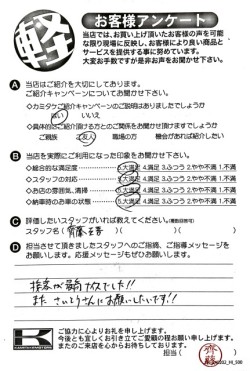 軽
お客様アンケート
当店では、お買い上げ頂いたお客様の声を可能
な限り現場に反映し、お客様により良い商品と
サービスを提供する事に努めています。
大変お手数ですが是非お声をお聞かせ下さい。
A 当店はご紹介を大切にしております。
ご紹介キャンペーンをお聞かせ下さい。
◇カミタケご紹介キャンペーンのご説明はありましたでしょうか
はい いいえ
◇具体的にご紹介頂ける方とのご関係をお聞かせ頂けますでしょうか
ご親族 ご友人 職場の方 機会があれば紹介したい
B 当店を実際にご利用になった印象をお聞かせ下さい。
◇総合的な満足度 5.大満足 4.満足 3.ふつう 2.やや不満 1.不満
◇スタッフの対応 5.大満足 4.満足 3.ふつう 2.やや不満 1.不満
◇お店の雰囲気、清掃 5.大満足 4.満足 3.ふつう 2.やや不満 1.不満
◇納車時のお車の状態 5.大満足 4.満足 3.ふつう 2.やや不満 1.不満
C 評価したいスタッフがいれば教えてください。(複数回答可)
スタッフ名( )( )( )
D 担当させて頂きましたスタッフへのご指摘、ご指導メッセージを
お願いします。応援メッセージもぜひお願いします。
接客が最高でした!!
また さいとうさんにお願いしたいです!!
K
ご協力に心よりお礼を申し上げます。
今後とも宜しくお引き立てご愛顧の程お願い申し上げます。
またのご来店を心からお待ちしております。
担当( )